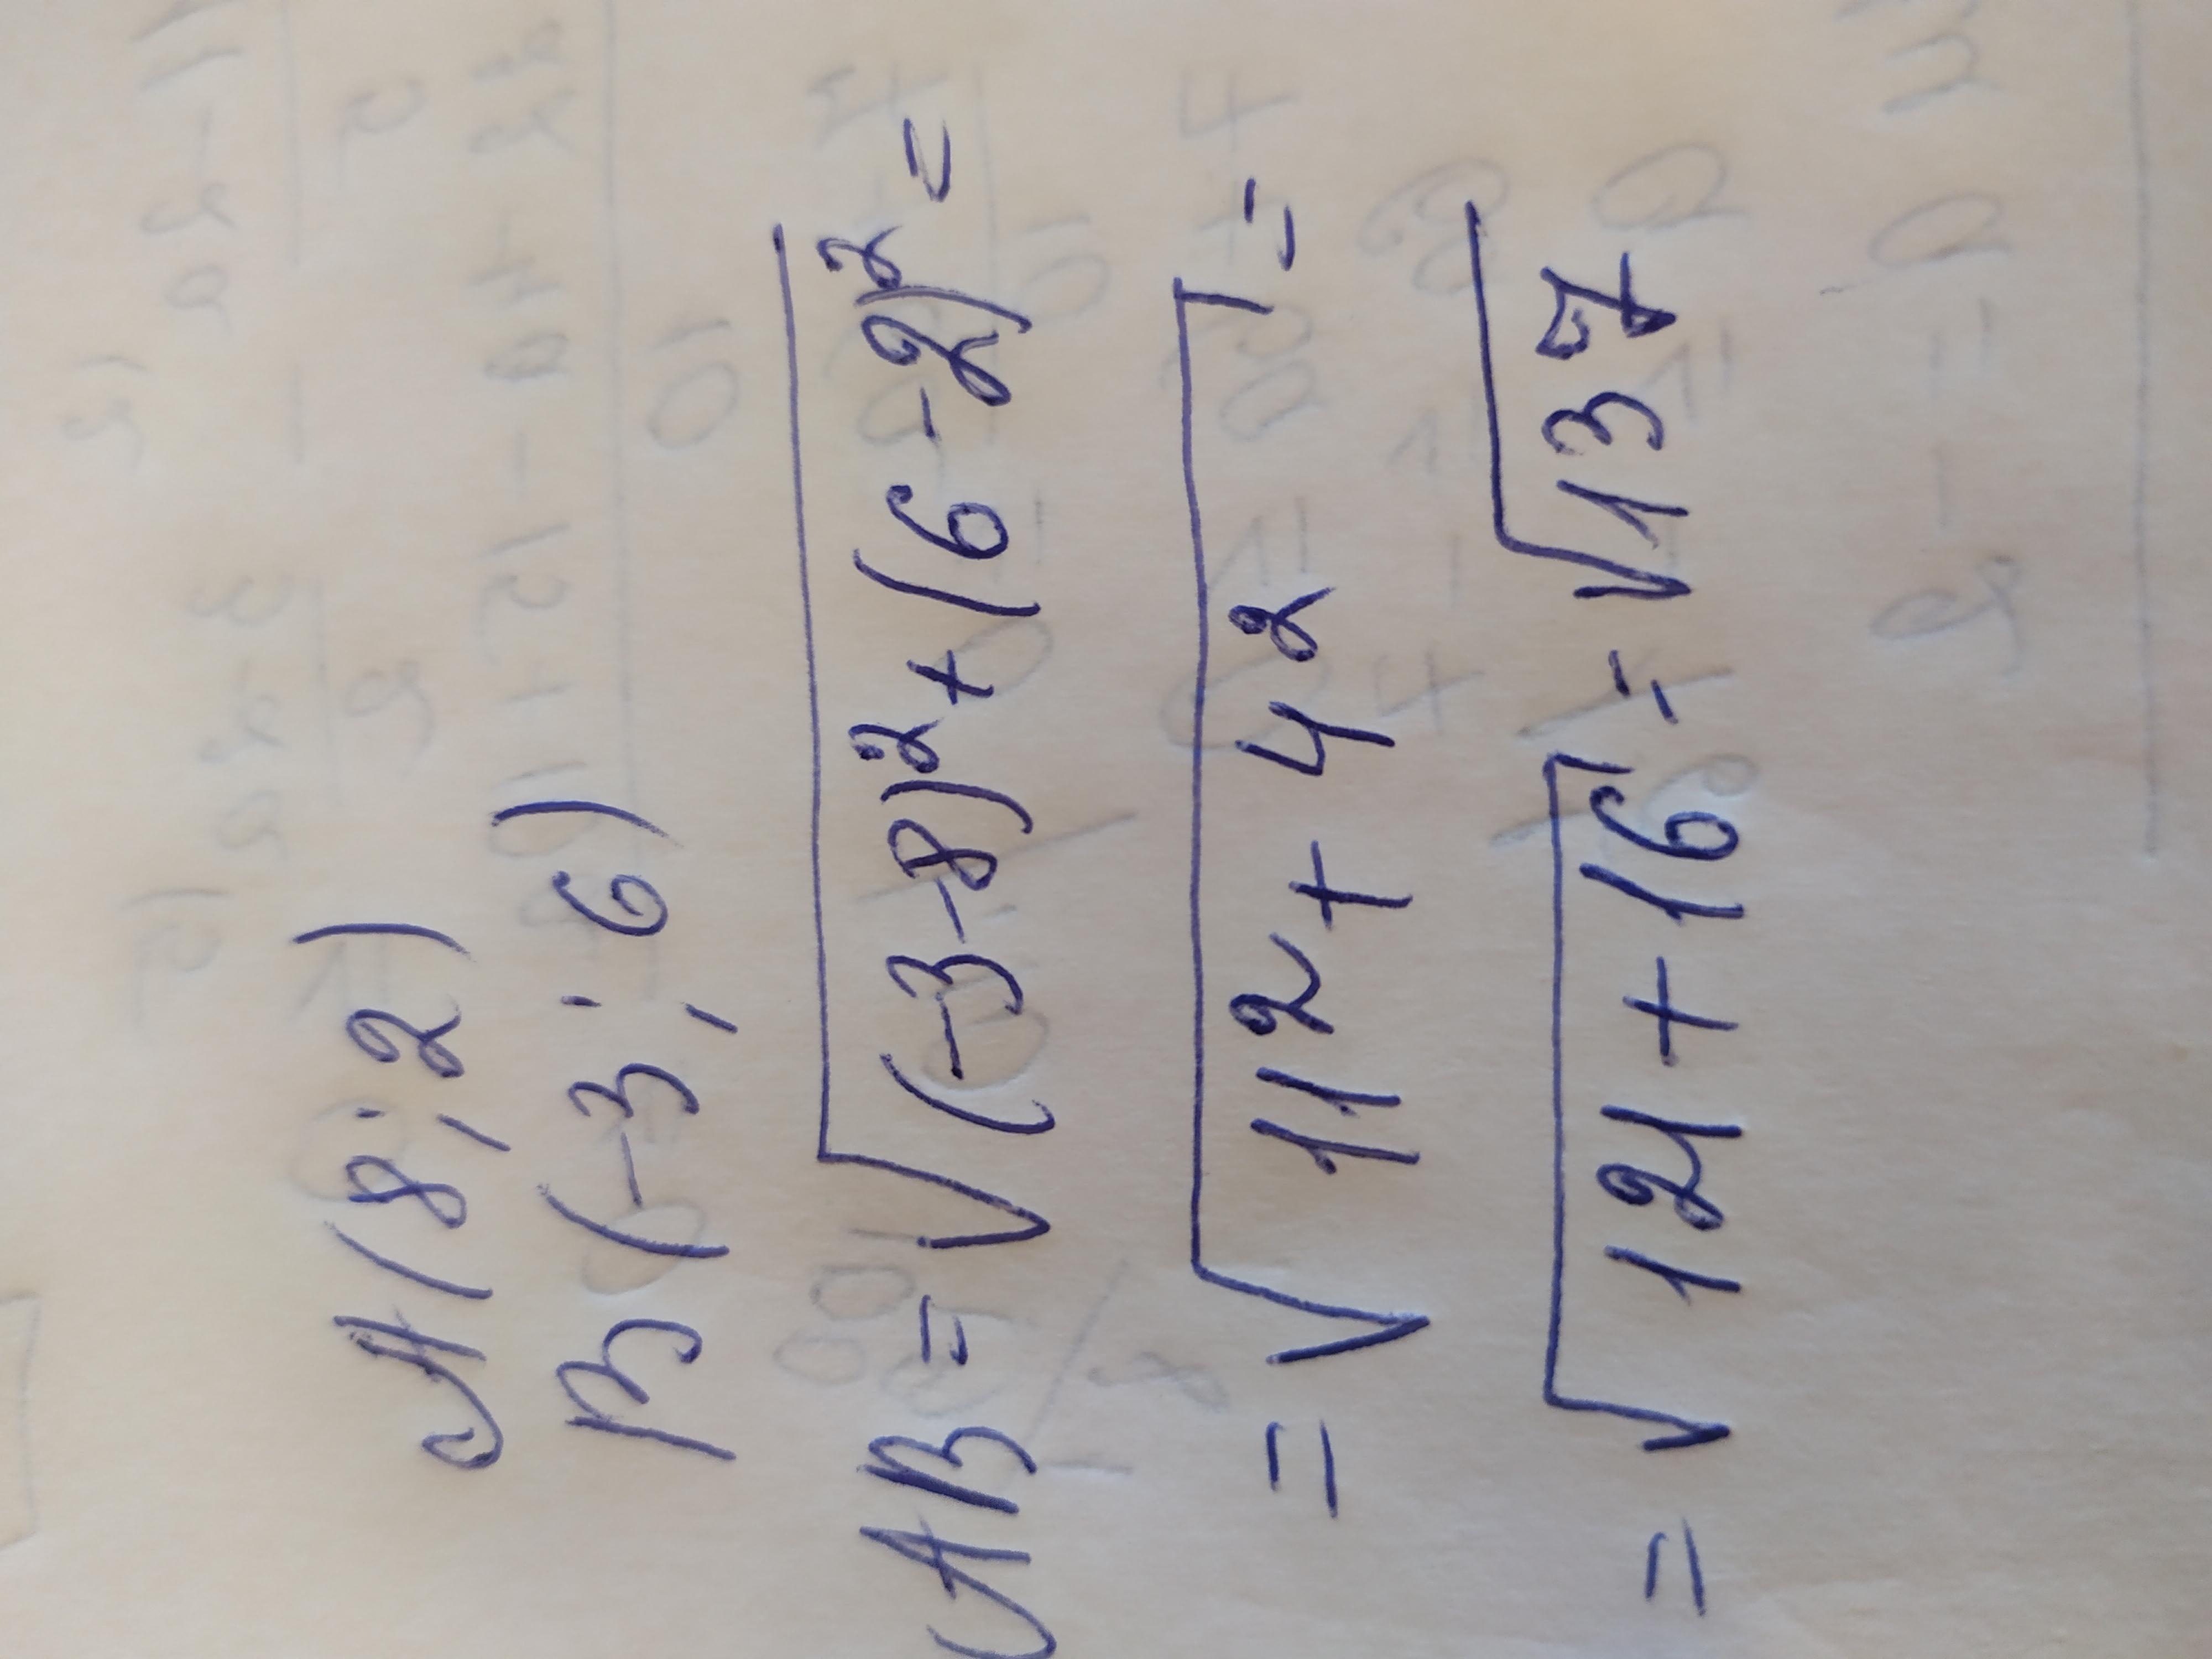 A(8;2)
B(-3;6)
AB=√(-3-8)²+(6-2)²=
=√11²+4²=
=√121+16=√137